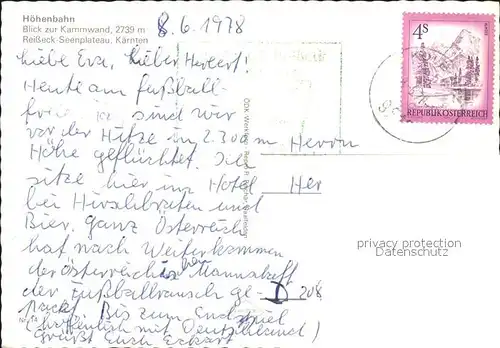 Höhenbahn
Blick zur Kammwand, 2739 m
Reißeck-Seenplateau, Kärnten
8.6.1978
Liebe Eva, lieber Herbert!
Heute am fußball-
freien sind wir
vor der Hitze in 2.300 m
Höhe geflüchtet. Ich
sitze hier im Hotel
bei Hirschbraten und
Bier. Ganz Österreich
hat nach Weiterkommen
der österreichischen Mannschaft
der Fußballrausch ge-
packt. Bis zum Endspiel
(hoffentlich mit Deutschland)
Grüßt Euch Eckart
Herrn
Her
D 208
4S
REPUBLIK ÖSTERREICH
privacy protection
Datenschutz